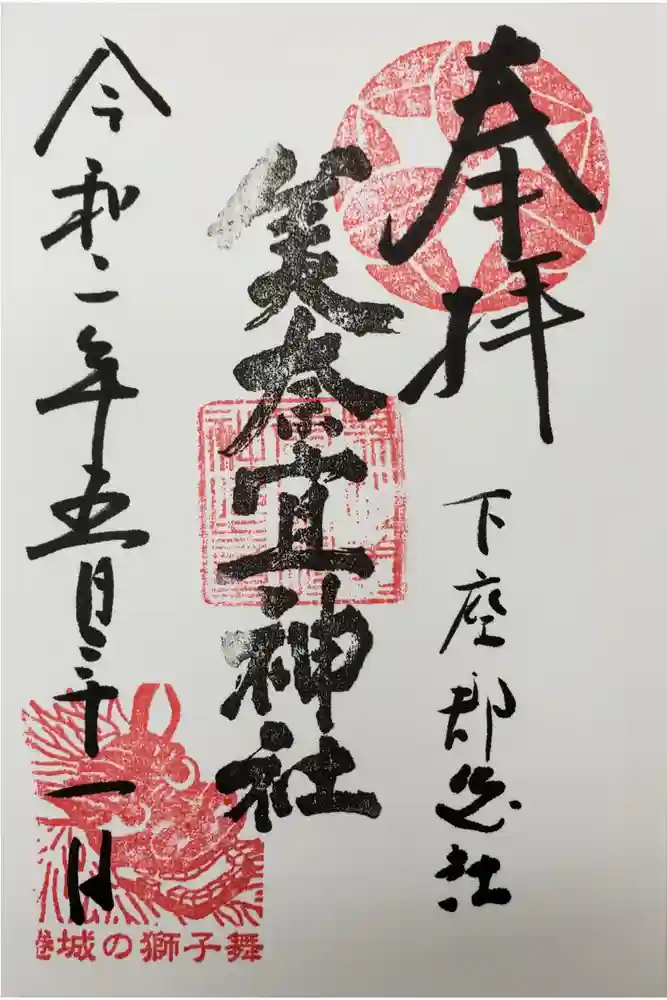 奉拝
下座郡惣社
美奈宜神社
令和二年五月三十一日
蜷城の獅子舞